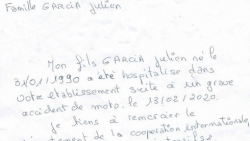 Famille GARCIA Julien
Mon fils GARCIA Julien né le
31/01/1990 a été hospitalisé dans
votre établissement suite à un grave
accident de moto. le 13/02/2020.
je tiens à remercier
de la coopération internationale